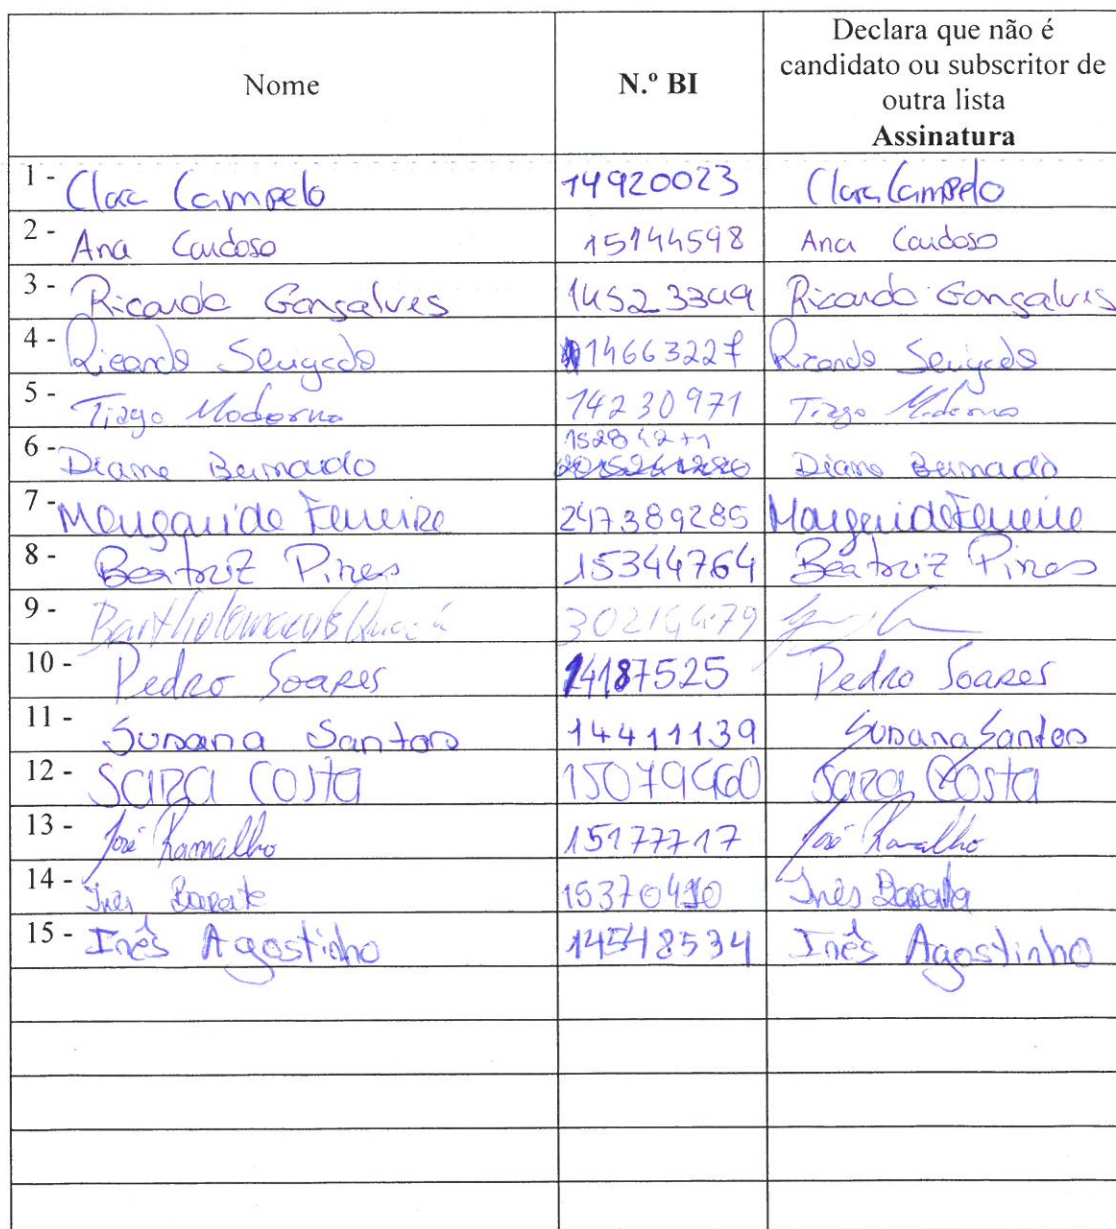 Nome
N.º BI
Declara que não é
candidato ou subscritor de
outra lista
Assinatura
1 - Clara Campelo 14920023 Clara Campelo
2 - Ana Cardoso 15144598 Ana Cardoso
3 - Ricardo Gonçalves 14523349 Ricardo Gonçalves
4 - Ricardo 14663227 Ricardo
5 - Tiago Moderno 14230971 Tiago Moderno
6 - Diana Bernardo Diana Bernardo
7 - Margarida Ferreira 247389285 Margarida Ferreira
8 - Beatriz Pires 15344764 Beatriz Pires
9 -
10 - Pedro Soares 14187525 Pedro Soares
11 - Susana Santos 14411139 Susana Santos
12 - Sara Costa Sara Costa
13 - José Ramalho 15177717 José Ramalho
14 - Inês Barata Inês Barata
15 - Inês Agostinho 14548534 Inês Agostinho